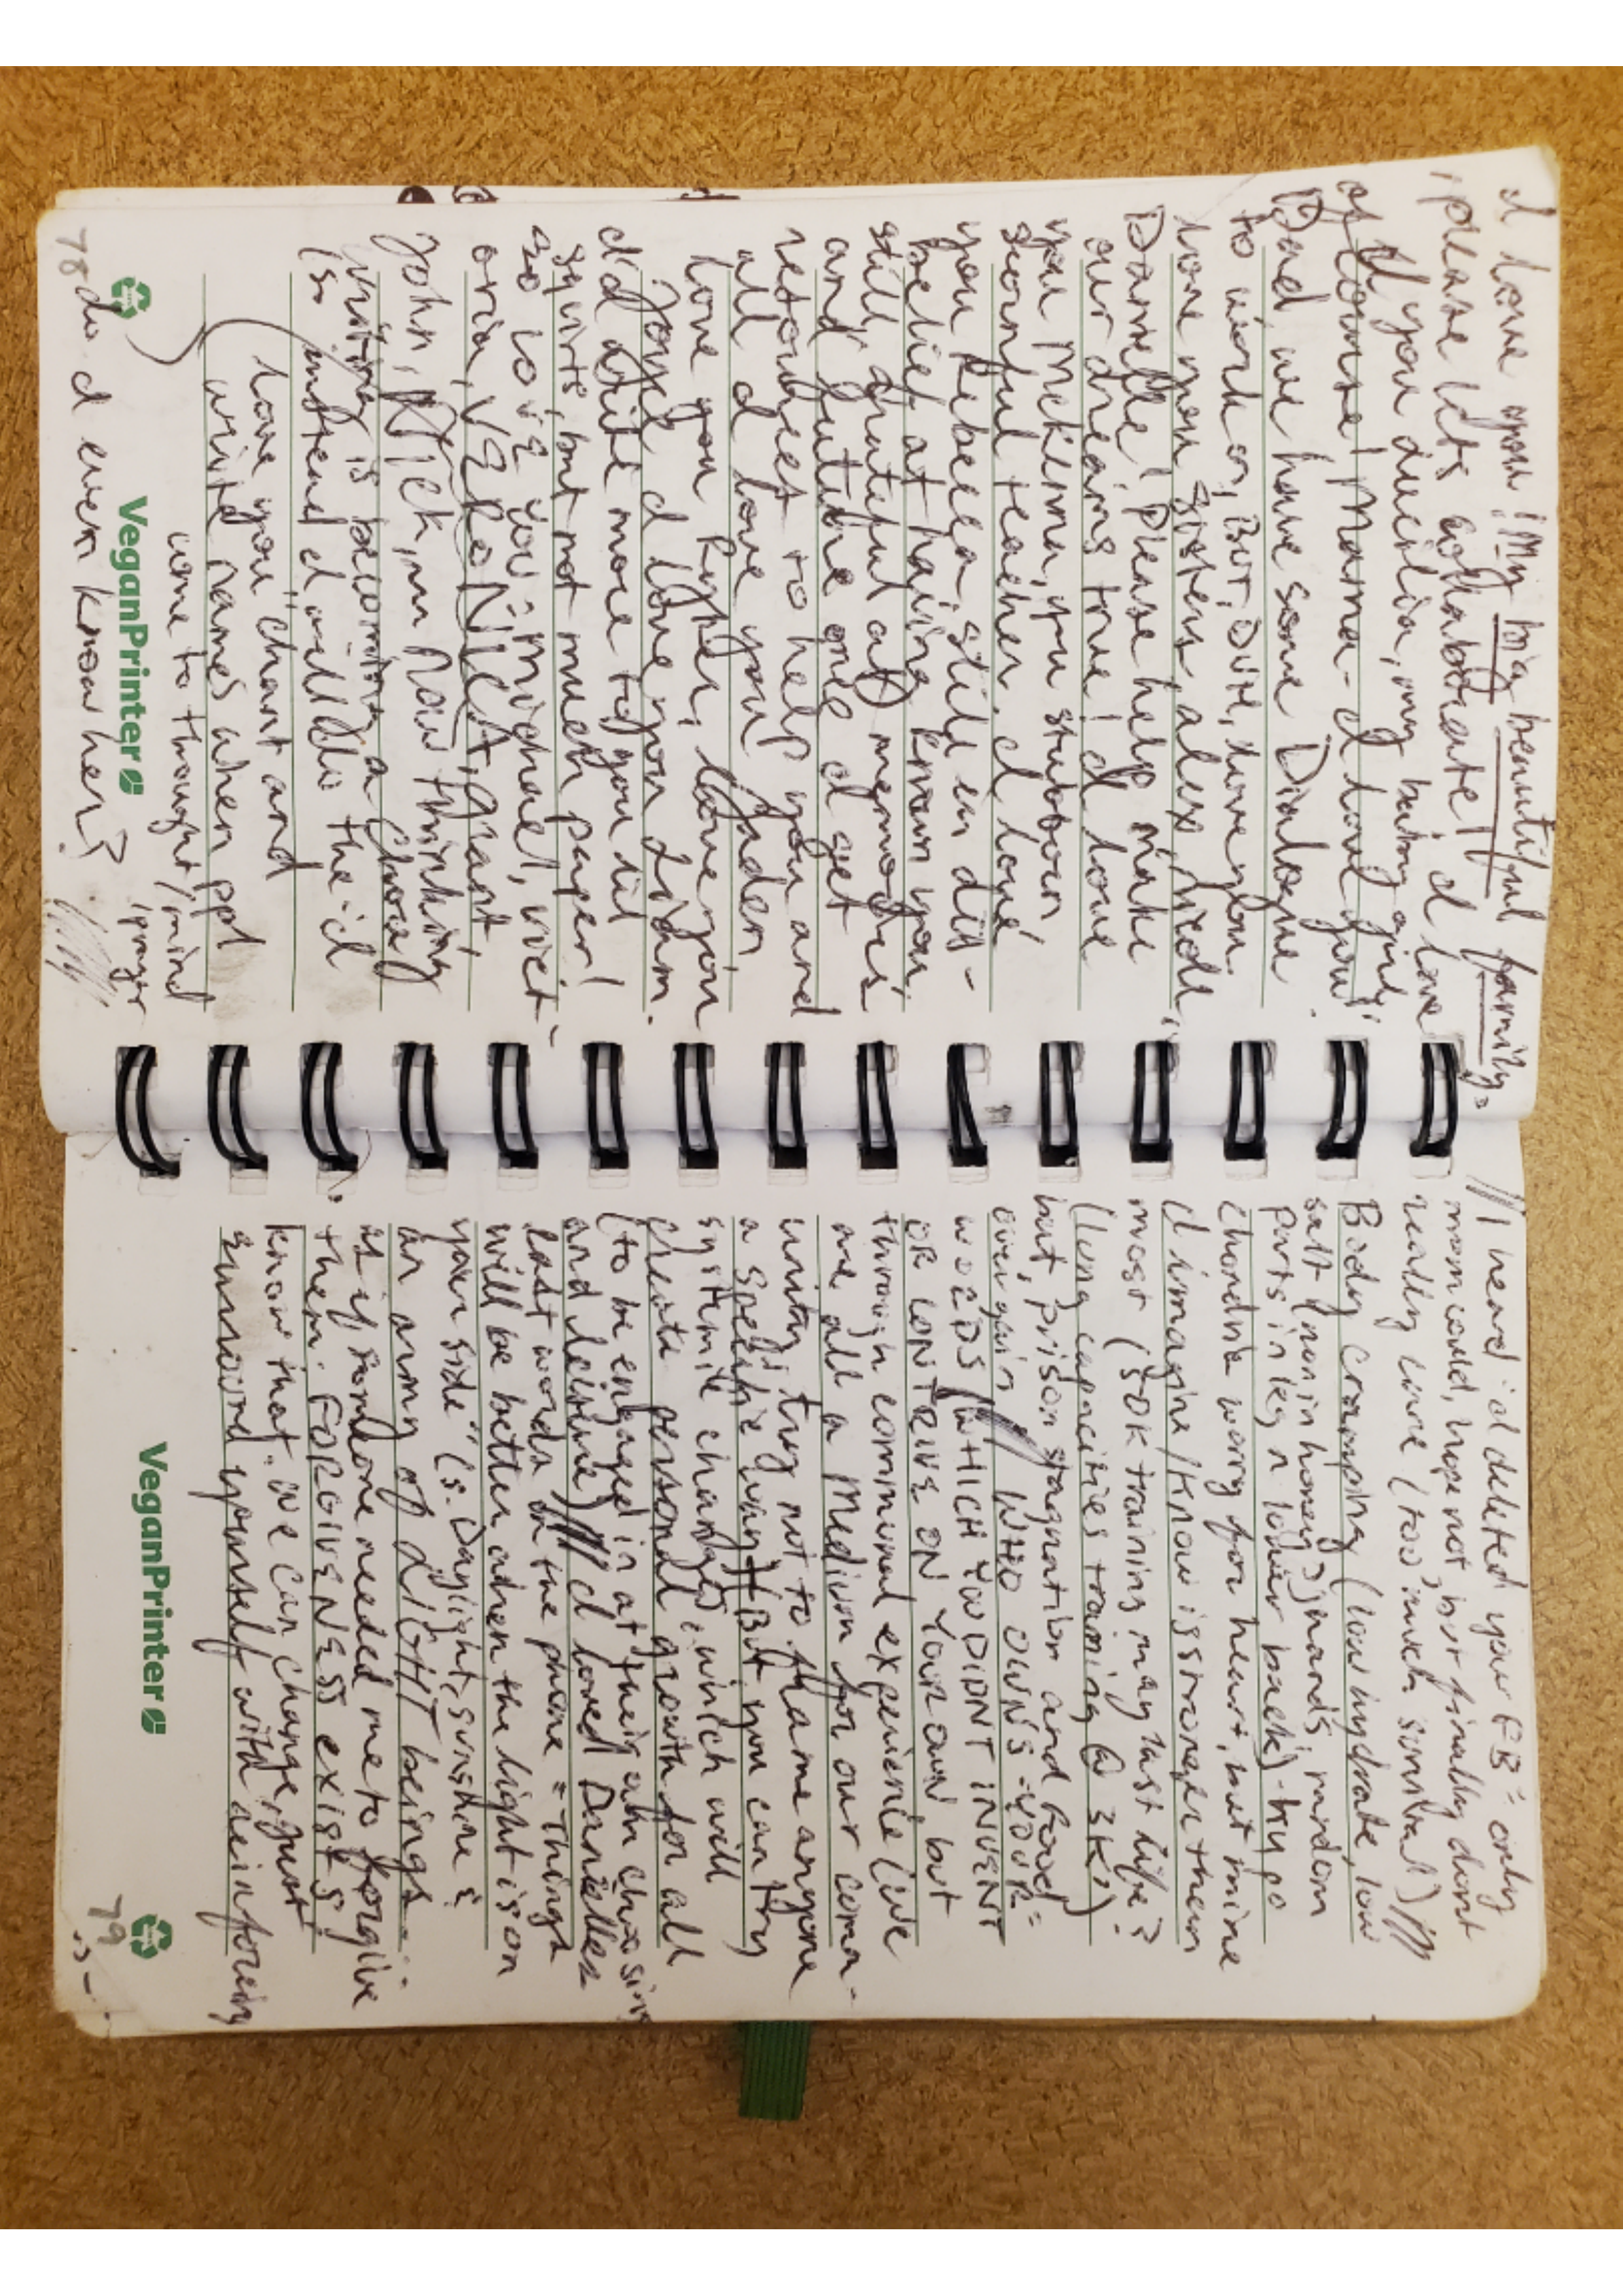 I love you! My big beautiful family,
please lets collaborate! I love
you duerlia, my baby girl,
of course! Mama- I love you!
Dad, we have some Dialogue
to work on, But, Duh, love you.
love you sisters, alex, nicole,
Danielle! Please help make
our dreams true! I love
you Meklina, you stubborn,
scornful teacher. I love
you Rebecca, still in dis-
belief at having known you,
still grateful at memories
and future ones I get
retouched to help you and
all I love you Jaden,
love you Ryker, love you
Joyel I love you Liam.
I'd write more to you lil
squirts, but not much paper!
So love you: Michael, vict-
oria, VERONICA, grant,
John, Rick, im now thinking
writing is becoming a chore,
(so instead I will do the "I
love you" chant and
write names when ppl
come to thought/mind
/prayer
do I even know her?
78
VeganPrinter
// I heard id deleted your FB = only
mom could, hope not, but finally dont
really care (too much survival) //
Body cramping (low hydrate, low
salt (non in honey?) hands, random
parts in leg n lower back) - hypo
chondria worry for heart, but mine
I imagine/know is stronger then
most (50K training may last life?
(lung capacities training @ 3K')
but, prison stagnation and food =
over gain // WHO OWNS YOUR
WORDS (WHICH YOU DIDNT INVENT
OR CONTRIVE ON YOUR OWN but
through communal experience (we
are all a Medium for our com-
unity, try not to blame anyone
a specific way)) But you can try
systemic changes, which will
create personal growth for all
(to be engaged in at their own choosing
and leisure) // I loved Danielles
last words on the phone = "Things
will be better when the light is on
your side" (s. Daylight, sunshine &
an army of LIGHT beings...
as if someone needed me to forgive
them. FORGIVENESS exists!
know that. We can change, just
surround yourself with reinforcing
VeganPrinter
79